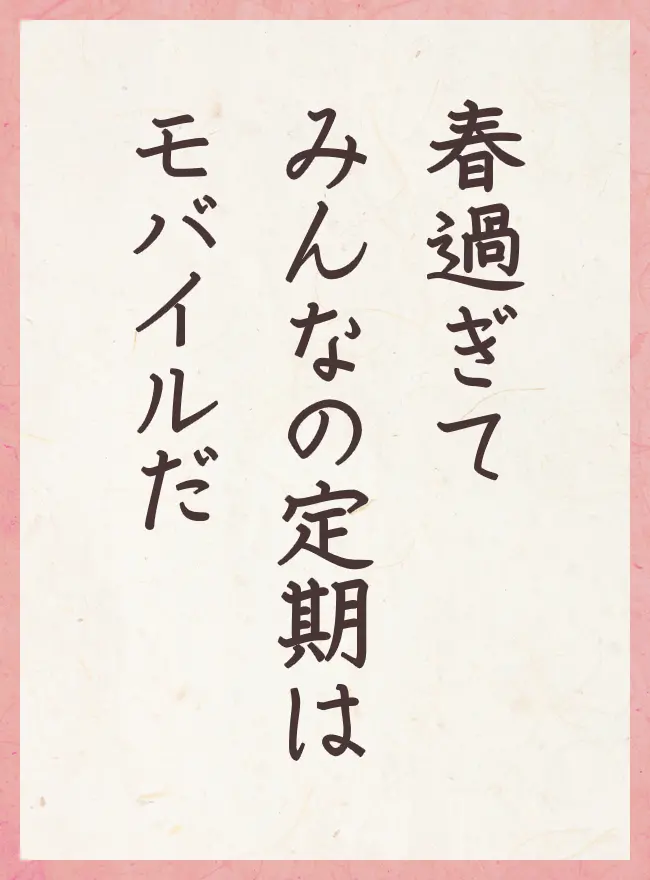 春過ぎて
みんなの定期は
モバイルだ